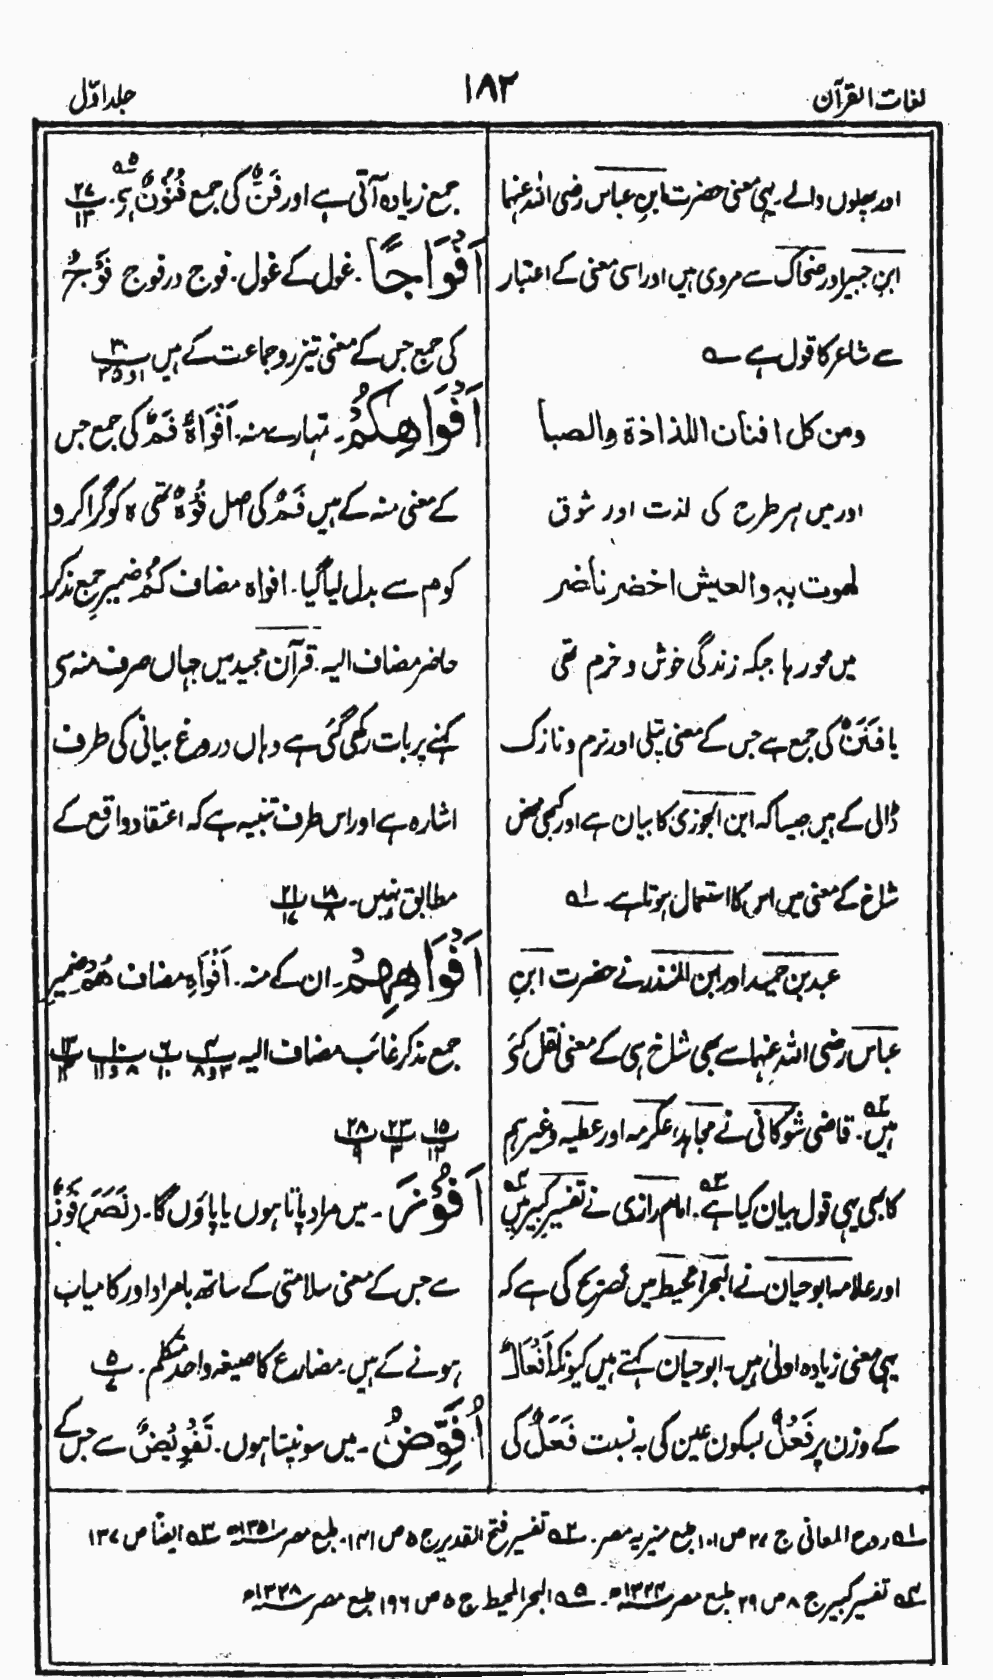 لغات القرآن
۱۸۲
جلد اوّل
اور پھلوں والے۔ یہی معنی حضرت ابنِ عباس رضی اللہ عنہما
ابنِ جبیر اور ضحاک سے مروی ہیں اور اسی معنی کے اعتبار
سے شاعر کا قول ہے ؎
ومن کل افنان اللذاذة والصبا
اور میں ہر طرح کی لذت اور شوق
لھوت بہ والعیش اخضر ناضر
میں محو رہا جبکہ زندگی خوش و خرم تھی
یا فَنَنٌ کی جمع ہے جس کے معنی پتلی اور نرم و نازک
ڈالی کے ہیں جیسا کہ ابن الجوزی کا بیان ہے اور کبھی محض
شاخ کے معنی میں اس کا استعمال ہوتا ہے۔ لہ
عبد بن حمید اور ابن المنذر نے حضرت ابنِ
عباس رضی اللہ عنہما سے بھی شاخ ہی کے معنی نقل کئے
ہیں۔ ۲ قاضی شوکانی نے مجاہد، عکرمہ اور عطیہ وغیرہم
کا بھی یہی قول بیان کیا ہے۔ ۳ امام رازی نے تفسیر کبیر میں ۴
اور علامہ ابو حیان نے البحر المحیط میں تصریح کی ہے کہ
یہی معنی زیادہ اولیٰ ہیں۔ ابو حیان کہتے ہیں کیونکہ اَفْعَالٌ
کے وزن پر فَعْلٌ بسکون عین کی بہ نسبت فَعَلٌ کی
جمع زیادہ آتی ہے اور فَنٌّ کی جمع فُنُوْنٌ ہے۔ ۵ ۲۷/۱۳
اَفْوَاجًا۔ غول کے غول۔ فوج در فوج فَوْجٌ
کی جمع جس کے معنی تیز رو جماعت کے ہیں ۳۰
اَفْوَاهِكُمْ۔ تمہارے منہ۔ اَفْوَاہٌ فَمٌ کی جمع جس
کے معنی منہ کے ہیں فَمٌ کی اصل فُوْہٌ تھی ہ کو گرا کر و
کو م سے بدل لیا گیا۔ افواہ مضاف كُمْ ضمیر جمع مذکر
حاضر مضاف الیہ۔ قرآن مجید میں جہاں صرف منہ سے
کہنے پر بات رکھی گئی ہے وہاں دروغ بیانی کی طرف
اشارہ ہے اور اس طرف تنبیہ ہے کہ اعتقاد واقع کے
مطابق نہیں۔ ۱۸/۸ ۲۱/۱۷
اَفْوَاهِهِمْ۔ ان کے منہ۔ اَفْوَاہِ مضاف هُمْ ضمیر
جمع مذکر غائب مضاف الیہ
۱۵/۱۳ ۲۳/۳ ۲۸/۹
اَفُوْزَ۔ میں مراد پاتا ہوں یا پاؤں گا۔ (نَصَرَ) فَوْزٌ
سے جس کے معنی سلامتی کے ساتھ بامراد اور کامیاب
ہونے کے ہیں۔ مضارع کا صیغہ واحد متکلم۔ ۵/۷
اُفَوِّضُ۔ میں سونپتا ہوں۔ تَفْوِیْضٌ سے جس کے
لہ روح المعانی ج ۲۷ ص ۱۰۱ طبع منیریہ مصر۔ ۲ تفسیر فتح القدیر ج ۵ ص ۱۳۱۔ طبع مصر ۱۳۵۱ھ ۳ ایضاً ص ۱۳۷
۴ تفسیر کبیر ج ۸ ص ۲۹ طبع مصر ۱۳۲۴ھ۔ ۵ البحر المحیط ج ۵ ص ۱۹۶ طبع مصر ۱۳۲۸ھ